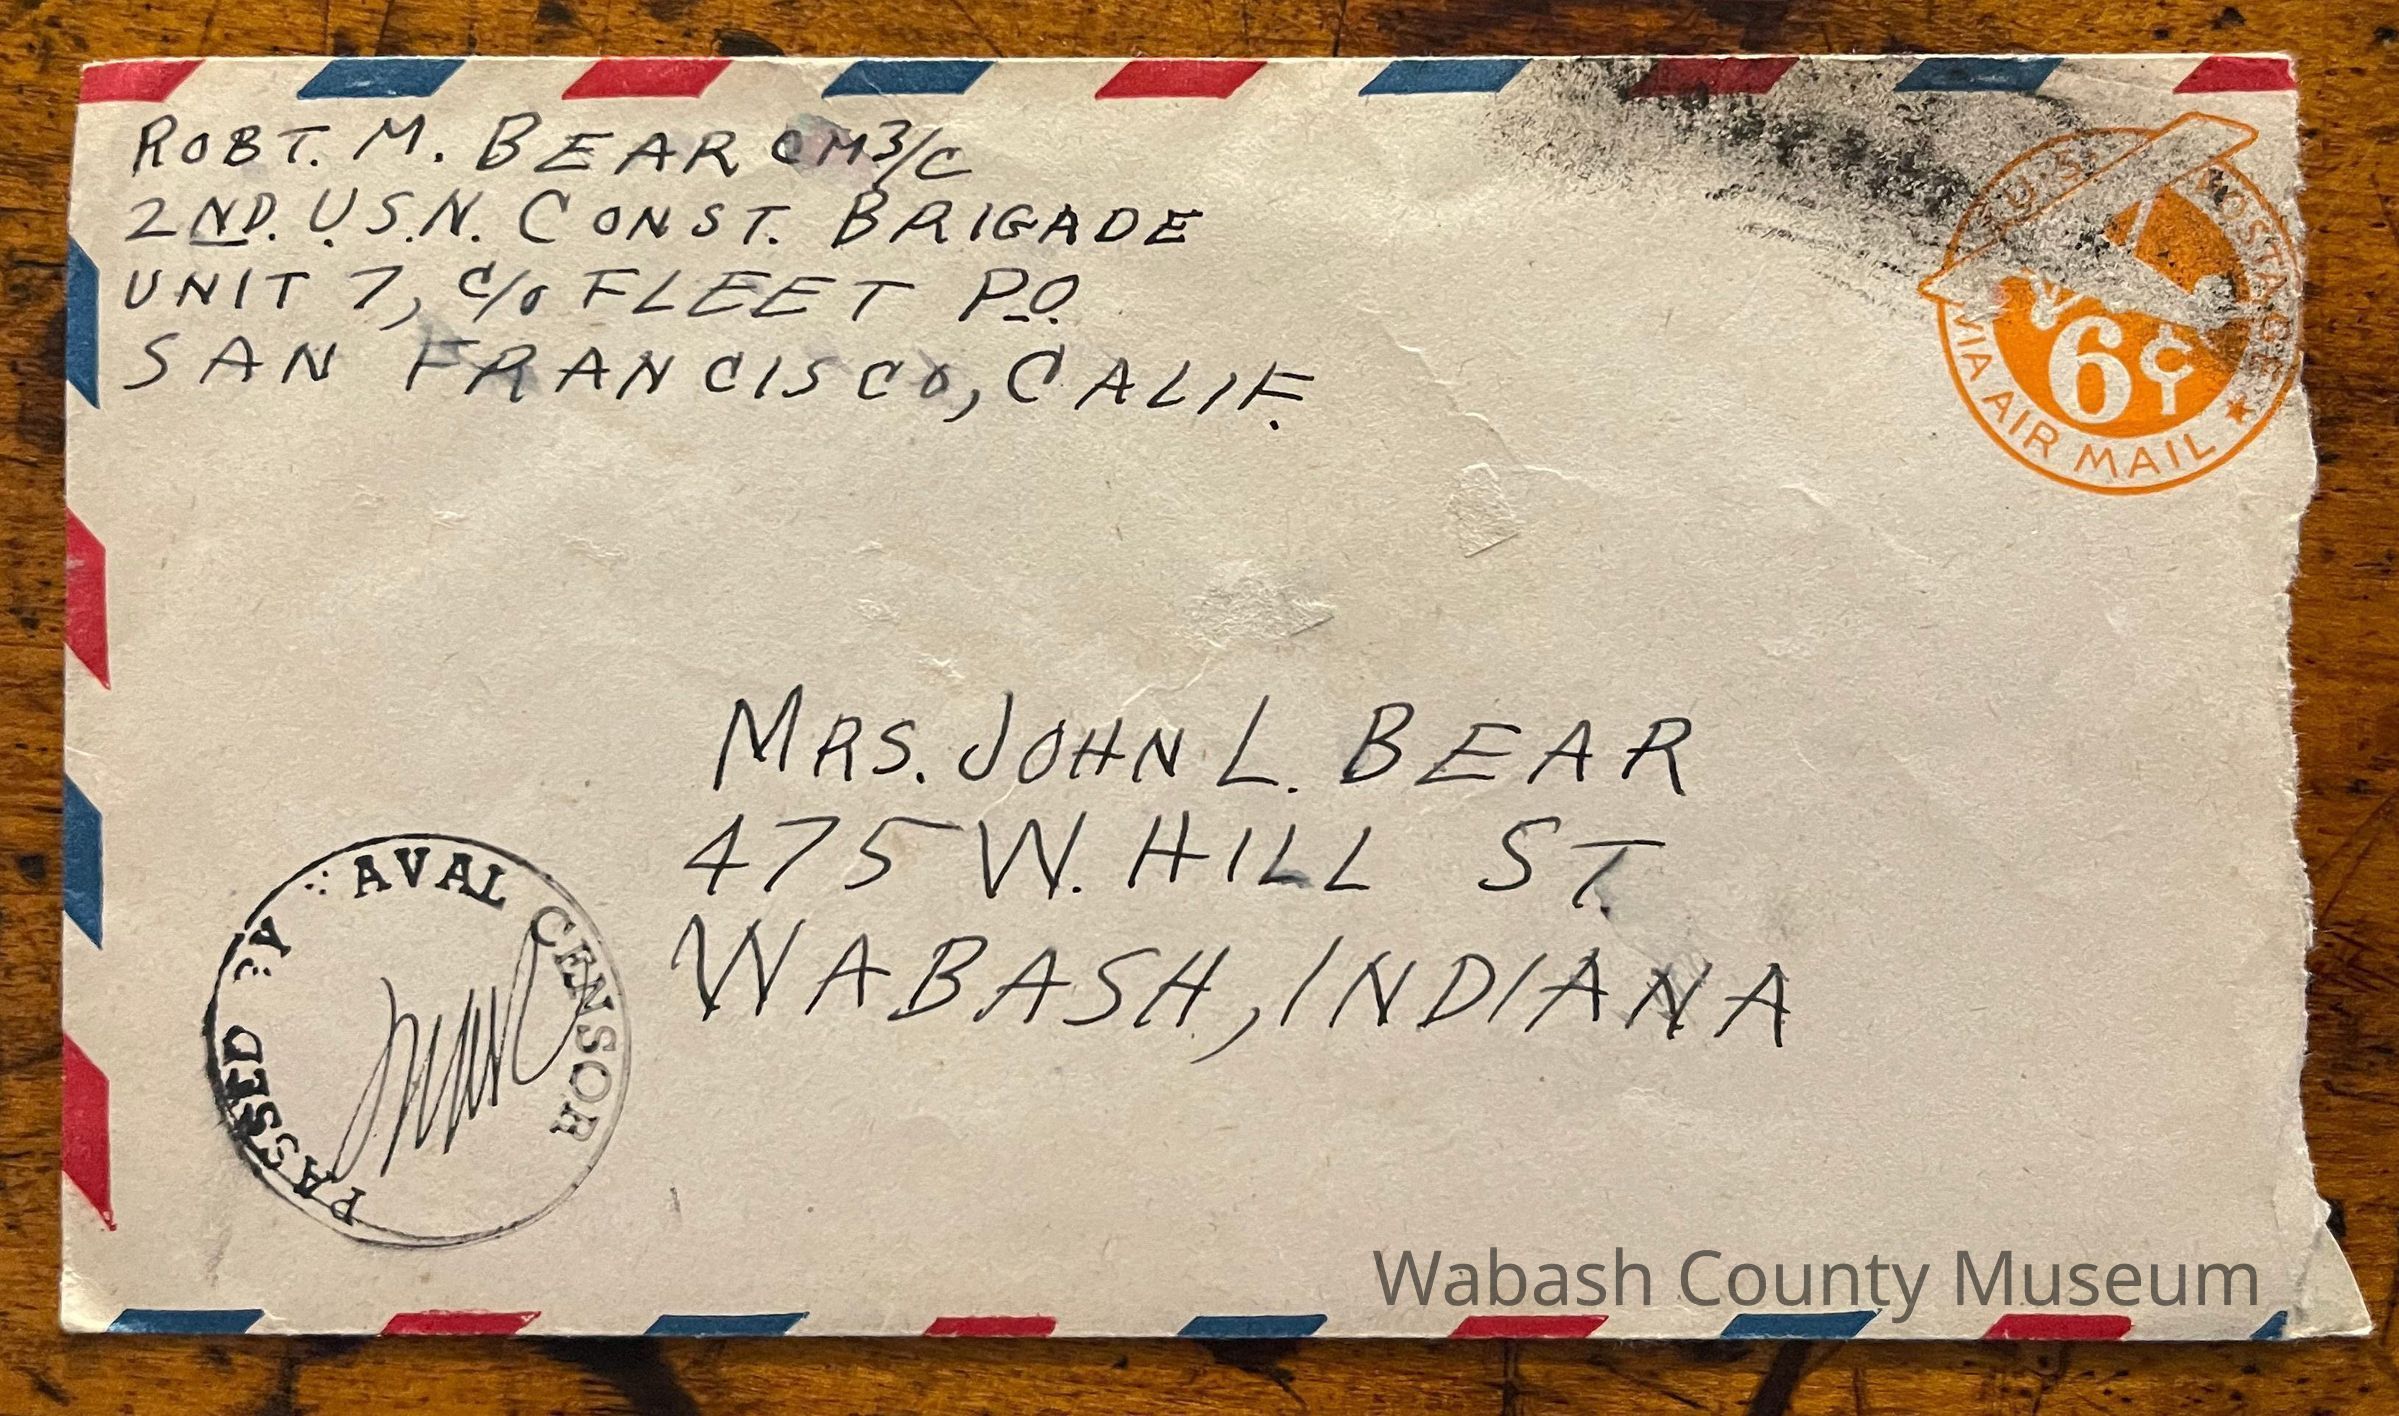 ROBT. M. BEAR CM3/C
2ND. U.S.N. CONST. BRIGADE
UNIT 7, C/O FLEET P.O.
SAN FRANCISCO, CALIF.
U.S. POSTAGE
6¢
VIA AIR MAIL
MRS. JOHN L. BEAR
475 W. HILL ST.
WABASH, INDIANA
PASSED BY NAVAL CENSOR
Wabash County Museum